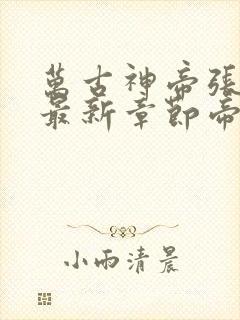 萬古神帝張
最新章節帝
小雨清晨